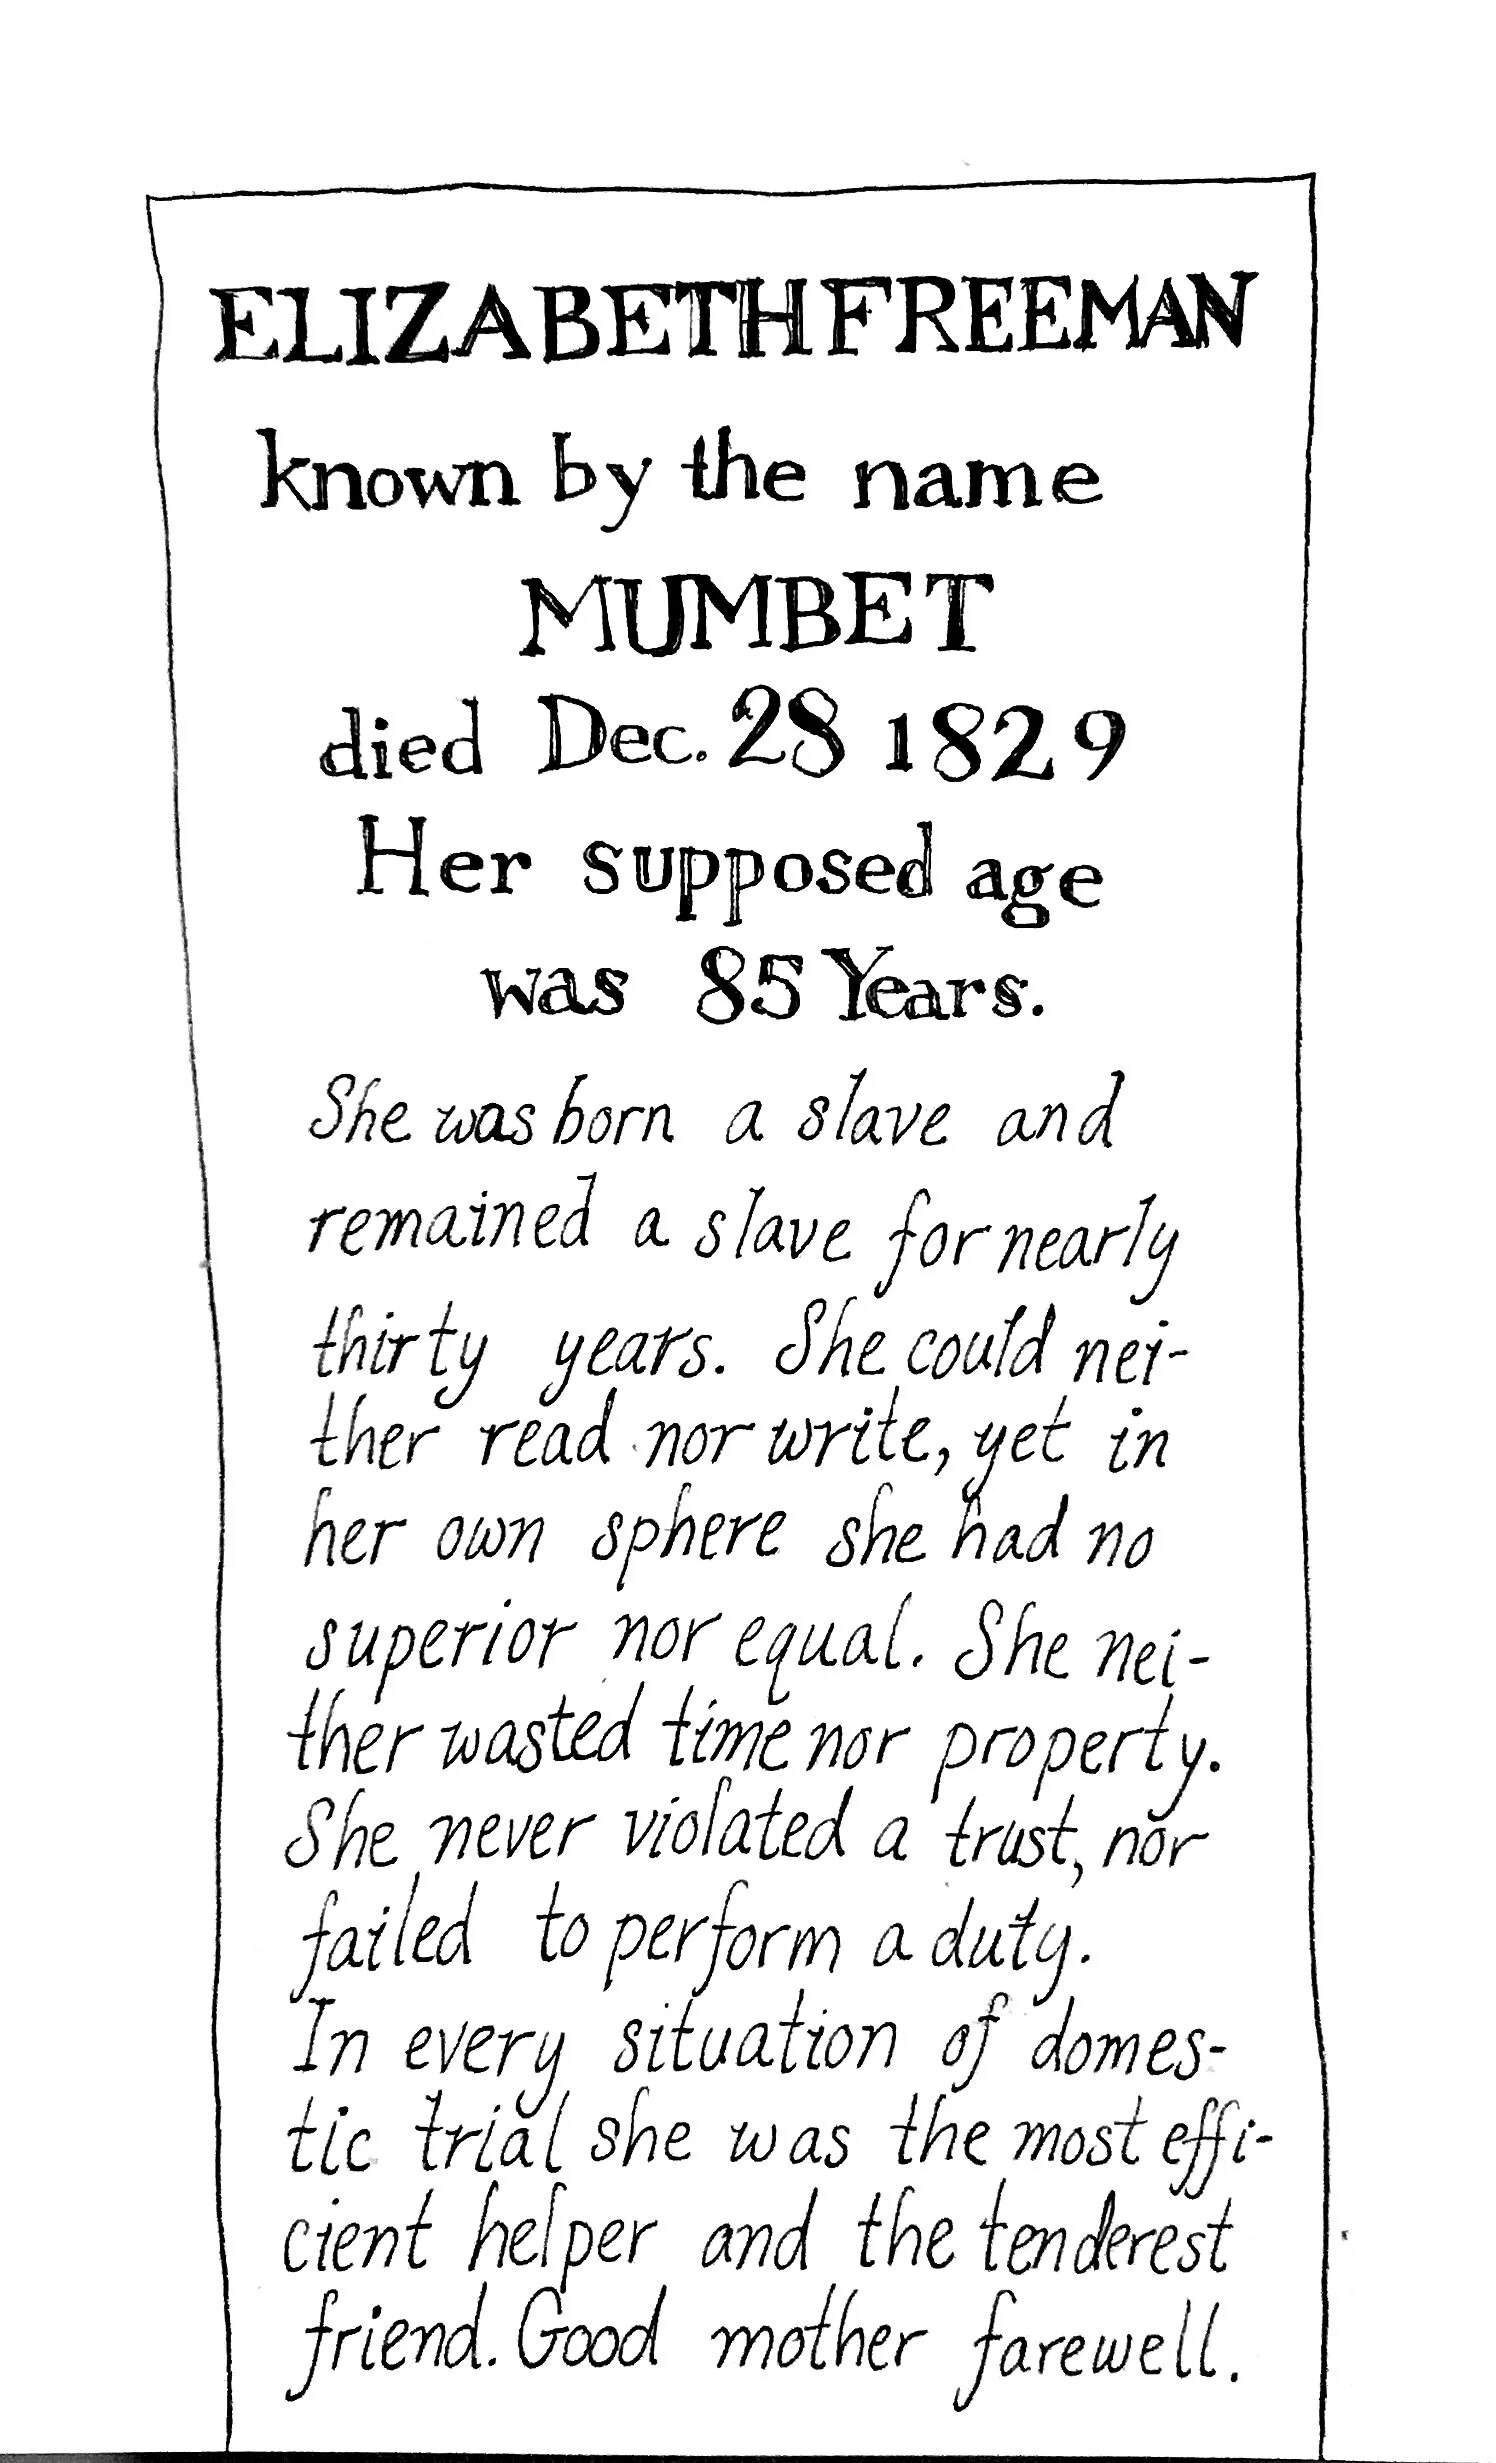 ELIZABETH FREEMAN
known by the name
MUMBET
died Dec. 28 1829
Her supposed age
was 85 Years.
She was born a slave and
remained a slave for nearly
thirty years. She could nei-
ther read nor write, yet in
her own sphere she had no
superior nor equal. She nei-
ther wasted time nor property.
She never violated a trust, nor
failed to perform a duty.
In every situation of domes-
tic trial she was the most effi-
cient helper and the tenderest
friend. Good mother farewell.